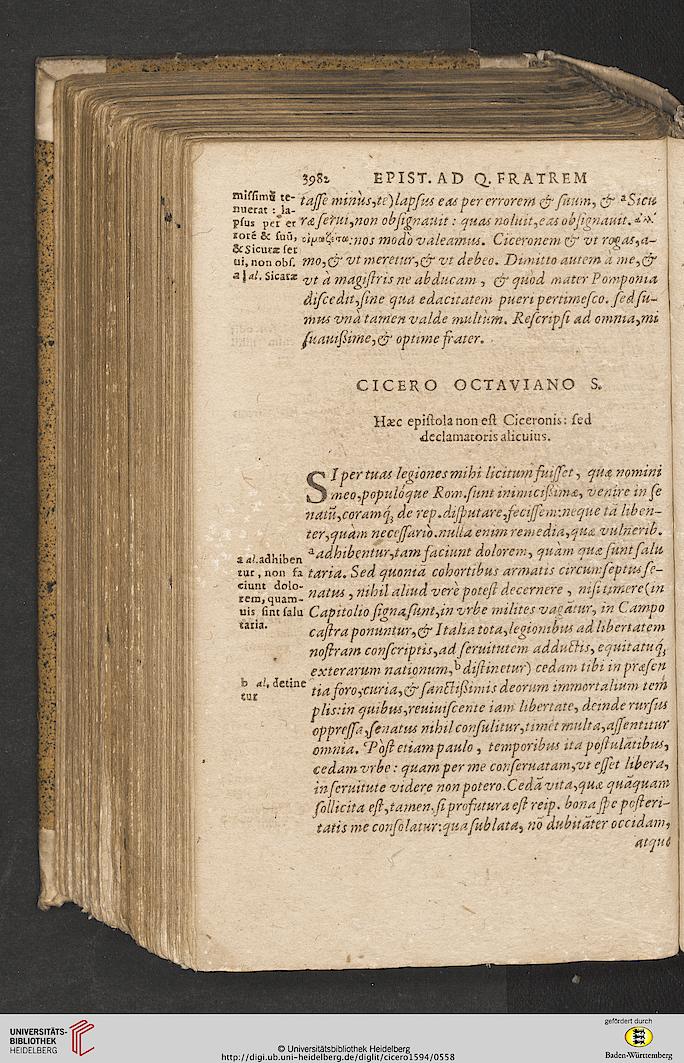 3982 EPIST. AD Q. FRATREM
missimū te-
nuerat : la-
psus per er
rorē & suū,
& Sicuræ ser
ui, non obs.
a | al. Sicatæ
tasse minùs, te) lapsus eas per errorem & suum, & ᵃ Sicu
ræ serui, non obsignauit : quas noluit, eas obsignauit.
nos modò valeamus. Ciceronem & vt rogas, a-
mo, & vt meretur, & vt debeo. Dimitto autem à me, &
vt à magistris ne abducam , & quòd mater Pomponia
discedit, sine qua edacitatem pueri pertimesco. sed su-
mus vnà tamen valde multùm. Rescripsi ad omnia, mi
suauißime, & optime frater.
CICERO OCTAVIANO S.
Hæc epistola non est Ciceronis: sed
declamatoris alicuius.
SI per tuas legiones mihi licitum fuisset , quæ nomini
meo, populóque Rom. sunt inimicißimæ, venire in se
natū, corámq́; de rep. disputare, fecissem: neque tā liben-
ter, quàm necessariò. nulla enim remedia, quæ vulnerib.
ᵃ adhibentur, tam faciunt dolorem, quàm quæ sunt salu
taria. Sed quoniā cohortibus armatis circumseptus se-
natus , nihil aliud verè potest decernere , nisi timere (in
Capitolio signa sunt, in vrbe milites vagātur, in Campo
castra ponuntur, & Italia tota, legionibus ad libertatem
nostram conscriptis, ad seruitutem adductis, equitatuq́;
exterarum nationum, ᵇ distinetur) cedam tibi in præsen
tia foro, curia, & sanctißimis deorum immortalium tem
plis: in quibus, reuiuiscente iam libertate, deinde rursus
oppressa, senatus nihil consulitur, timet multa, assentitur
omnia. Pòst etiam paulo , temporibus ita postulātibus,
cedam vrbe : quam per me conseruatam, vt esset libera,
in seruitute videre non potero. Cedā vita, quæ quāquam
sollicita est, tamen, si profutura est reip. bona spe posteri-
tatis me consolatur: qua sublata, nō dubitāter occidam,
atque
a al. adhiben
tur , non fa
ciunt dolo-
rem, quam-
uis sint salu
taria.
b al. detine
tur
UNIVERSITÄTS-
BIBLIOTHEK
HEIDELBERG
© Universitätsbibliothek Heidelberg
http://digi.ub.uni-heidelberg.de/diglit/cicero1594/0558
gefördert durch
Baden-Württemberg